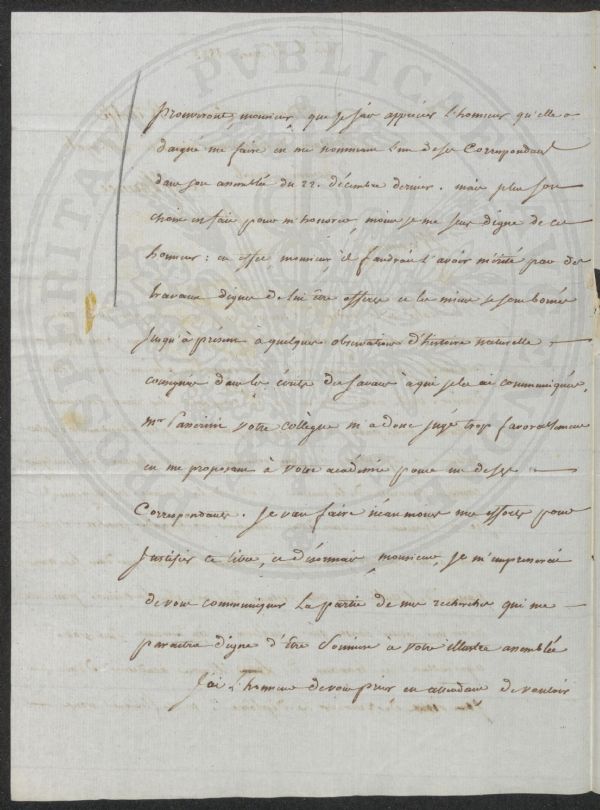 prouveront, monsieur, que je sai apprécier l'honneur qu'elle a
daigné me faire en me nommant l'un de ses Correspondant
dans son assemblée du 22. décembre dernier. mais plus son
choix est fait pour m'honorer, moins je me sens digne de cet
honneur: en effet, monsieur, il faudrait l'avoir mérité par des
travaux dignes de lui être offerts et les miens se sont bornés
jusqu'à présent à quelques observations d'histoire naturelle
consignées dans les écrits des savans à qui je les ai communiquées.
Mr votre collègue m'a donc jugé trop favorablement
en me proposant à votre académie pour un de ses
Correspondants. Je vais faire néanmoins mes efforts pour
justifier ce titre, et désormais, monsieur, je m'empresserai
de vous communiquer la partie de mes recherches qui me
paraitra digne d'être soumise à votre illustre assemblée
J'ai l'honneur de vous prier en attendant de vouloir
PVBLICAE
PROSPERITATI